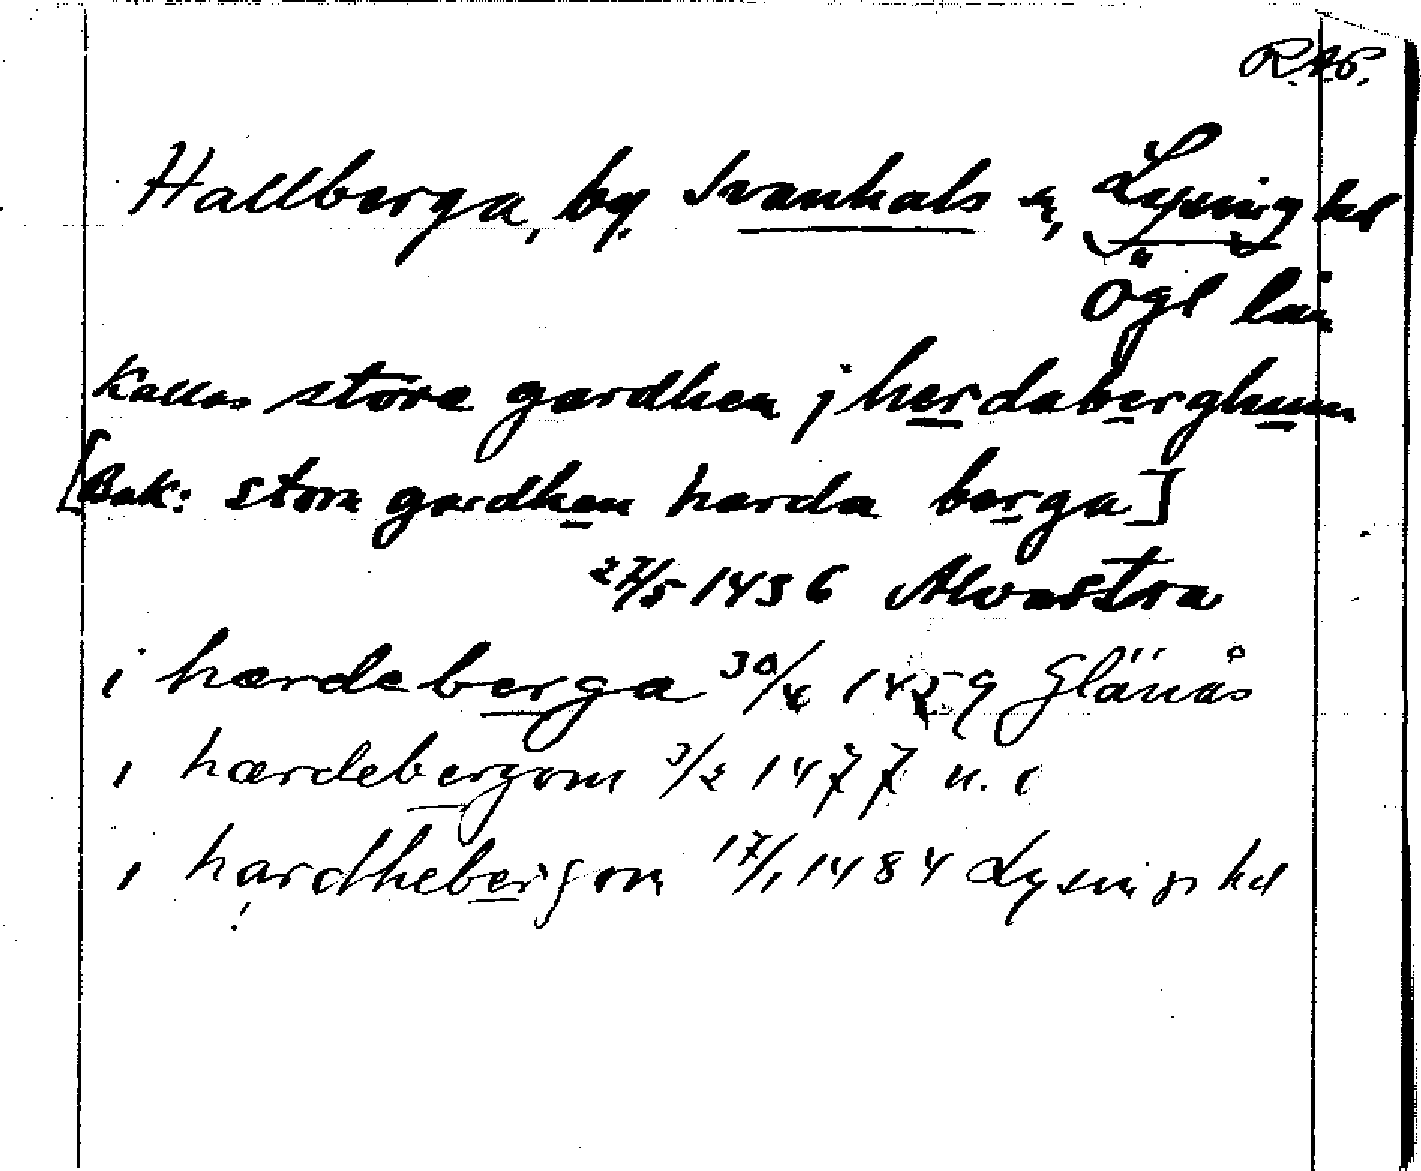 RAP.
Hallberga, by. Svanhals sn, Lysing hd
Ögl län
Kallas store gardhen j herdaberghum
[Bak: stora gardhen harda berga]
27/5 1436 Alvastra
i hærdeberga 30/4 1459 Glänås
i hærdebergom 3/2 1477 u. o
i hardhebergom 17/1 1484 Lysings hd